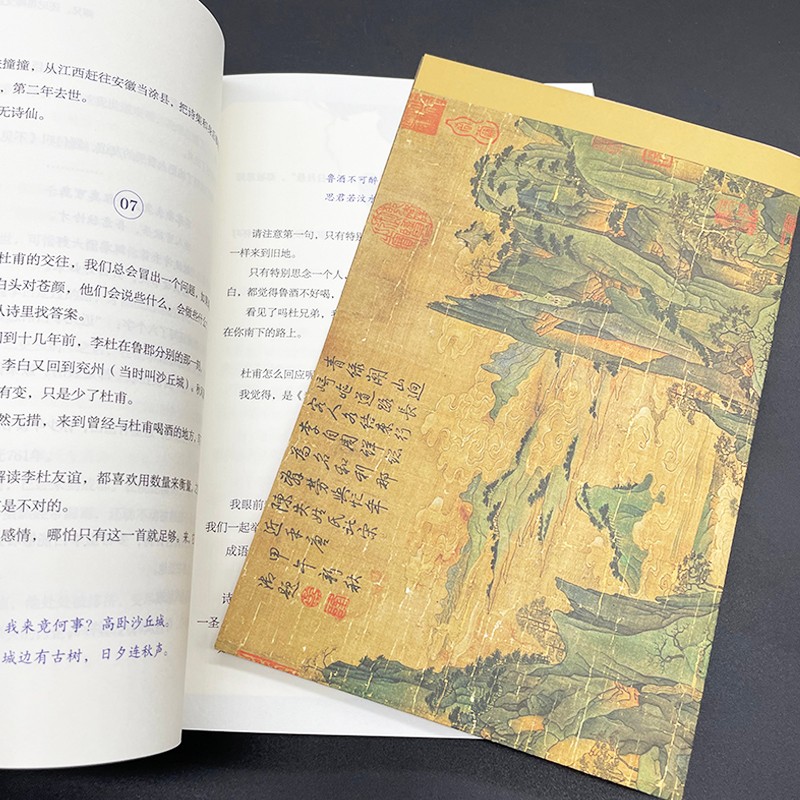 撞撞，从江西赶往安徽当涂县，把诗集和
，第二年去世。
无诗仙。
07
杜甫的交往，我们总会冒出一个问题，如
白头对苍颜，他们会说些什么，会做些什么
从诗里找答案。
到十几年前，李杜在鲁郡分别的那一
李白又回到兖州（当时叫沙丘城）。
有变，只是少了杜甫。
然无措，来到曾经与杜甫喝酒的地方，
解读李杜友谊，都喜欢用数量来衡量，
是不对的。
感情，哪怕只有这一首就足够。来，
我来竟何事？高卧沙丘城。
城边有古树，日夕连秋声。
鲁酒不可醉
思君若汶水
请注意第一句，只有特别
一样来到旧地。
只有特别思念一个人，
白，都觉得鲁酒不好喝，
看见了吗杜兄弟，我
在你南下的路上。
杜甫怎么回应呢
我觉得，是《
我眼前
我们一起举
成语
诗
一圣
青緑關山迥
崎嶇道路長
客人各結束行
李自周詳總
為名和利那
辭勞與忙年
陳失姓氏北宋
近乎唐
甲午新秋
御題